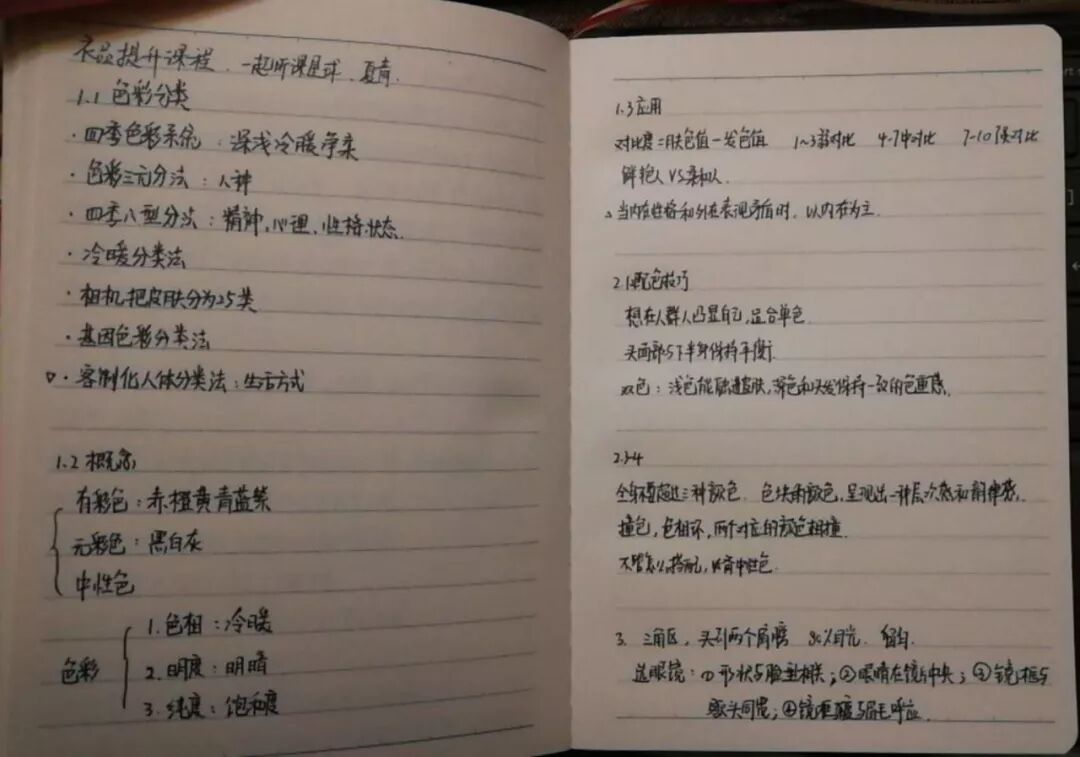 衣品提升课程．一起听课星球．夏青．
1.1 色彩分类
·四季色彩系统：深浅冷暖净柔
·色彩三元分法：人种
·四季八型分法：精神，心理，性格状态．
·冷暖分类法
·相机把皮肤分为25类
·基因色彩分类法
▽·客制化人体分类法：生活方式
1.2 概念
有彩色：赤橙黄青蓝紫
无彩色：黑白灰
中性色
色彩
1.色相：冷暖
2.明度：明暗
3.纯度：饱和度
1.3 应用
对比度=肤色值-发色值 1~3弱对比 4-7中对比 7-10强对比
鲜艳人 VS 柔和人．
△当内在性格和外在表现矛盾时．以内在为主．
2.1配色技巧
想在人群人凸显自己，适合单色．
头面部与下半身保持平衡．
双色：浅色能融进皮肤，深色和头发保持一致的色重感．
2.3-4
全身不要超过三种颜色． 色块用颜色，呈现出一种层次感和韵律感．
撞色，色相环，两个对应的颜色相撞．
不管怎么搭配，必有中性色．
3. 三角区，头到两个肩膀 80%目光． 留白．
选眼镜：①形状与脸型相关；②眼睛在镜片中央；③镜框与
同宽；④镜 与眉毛呼应．